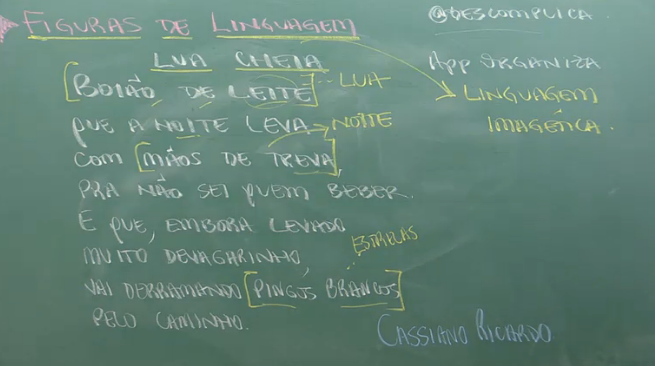 FIGURAS DE LINGUAGEM
@DESCOMPLICA.
LUA CHEIA
APP ORGANIZA
[BOIÃO DE LEITE] LUA
LINGUAGEM
IMAGÉTICA.
QUE A NOITE LEVA NOITE
COM [MÃOS DE TREVA],
PRA NÃO SEI QUEM BEBER.
E QUE, EMBORA LEVADO
MUITO DEVAGARINHO,
ESTRELAS
VAI DERRAMANDO [PINGOS BRANCOS]
PELO CAMINHO.
CASSIANO RICARDO